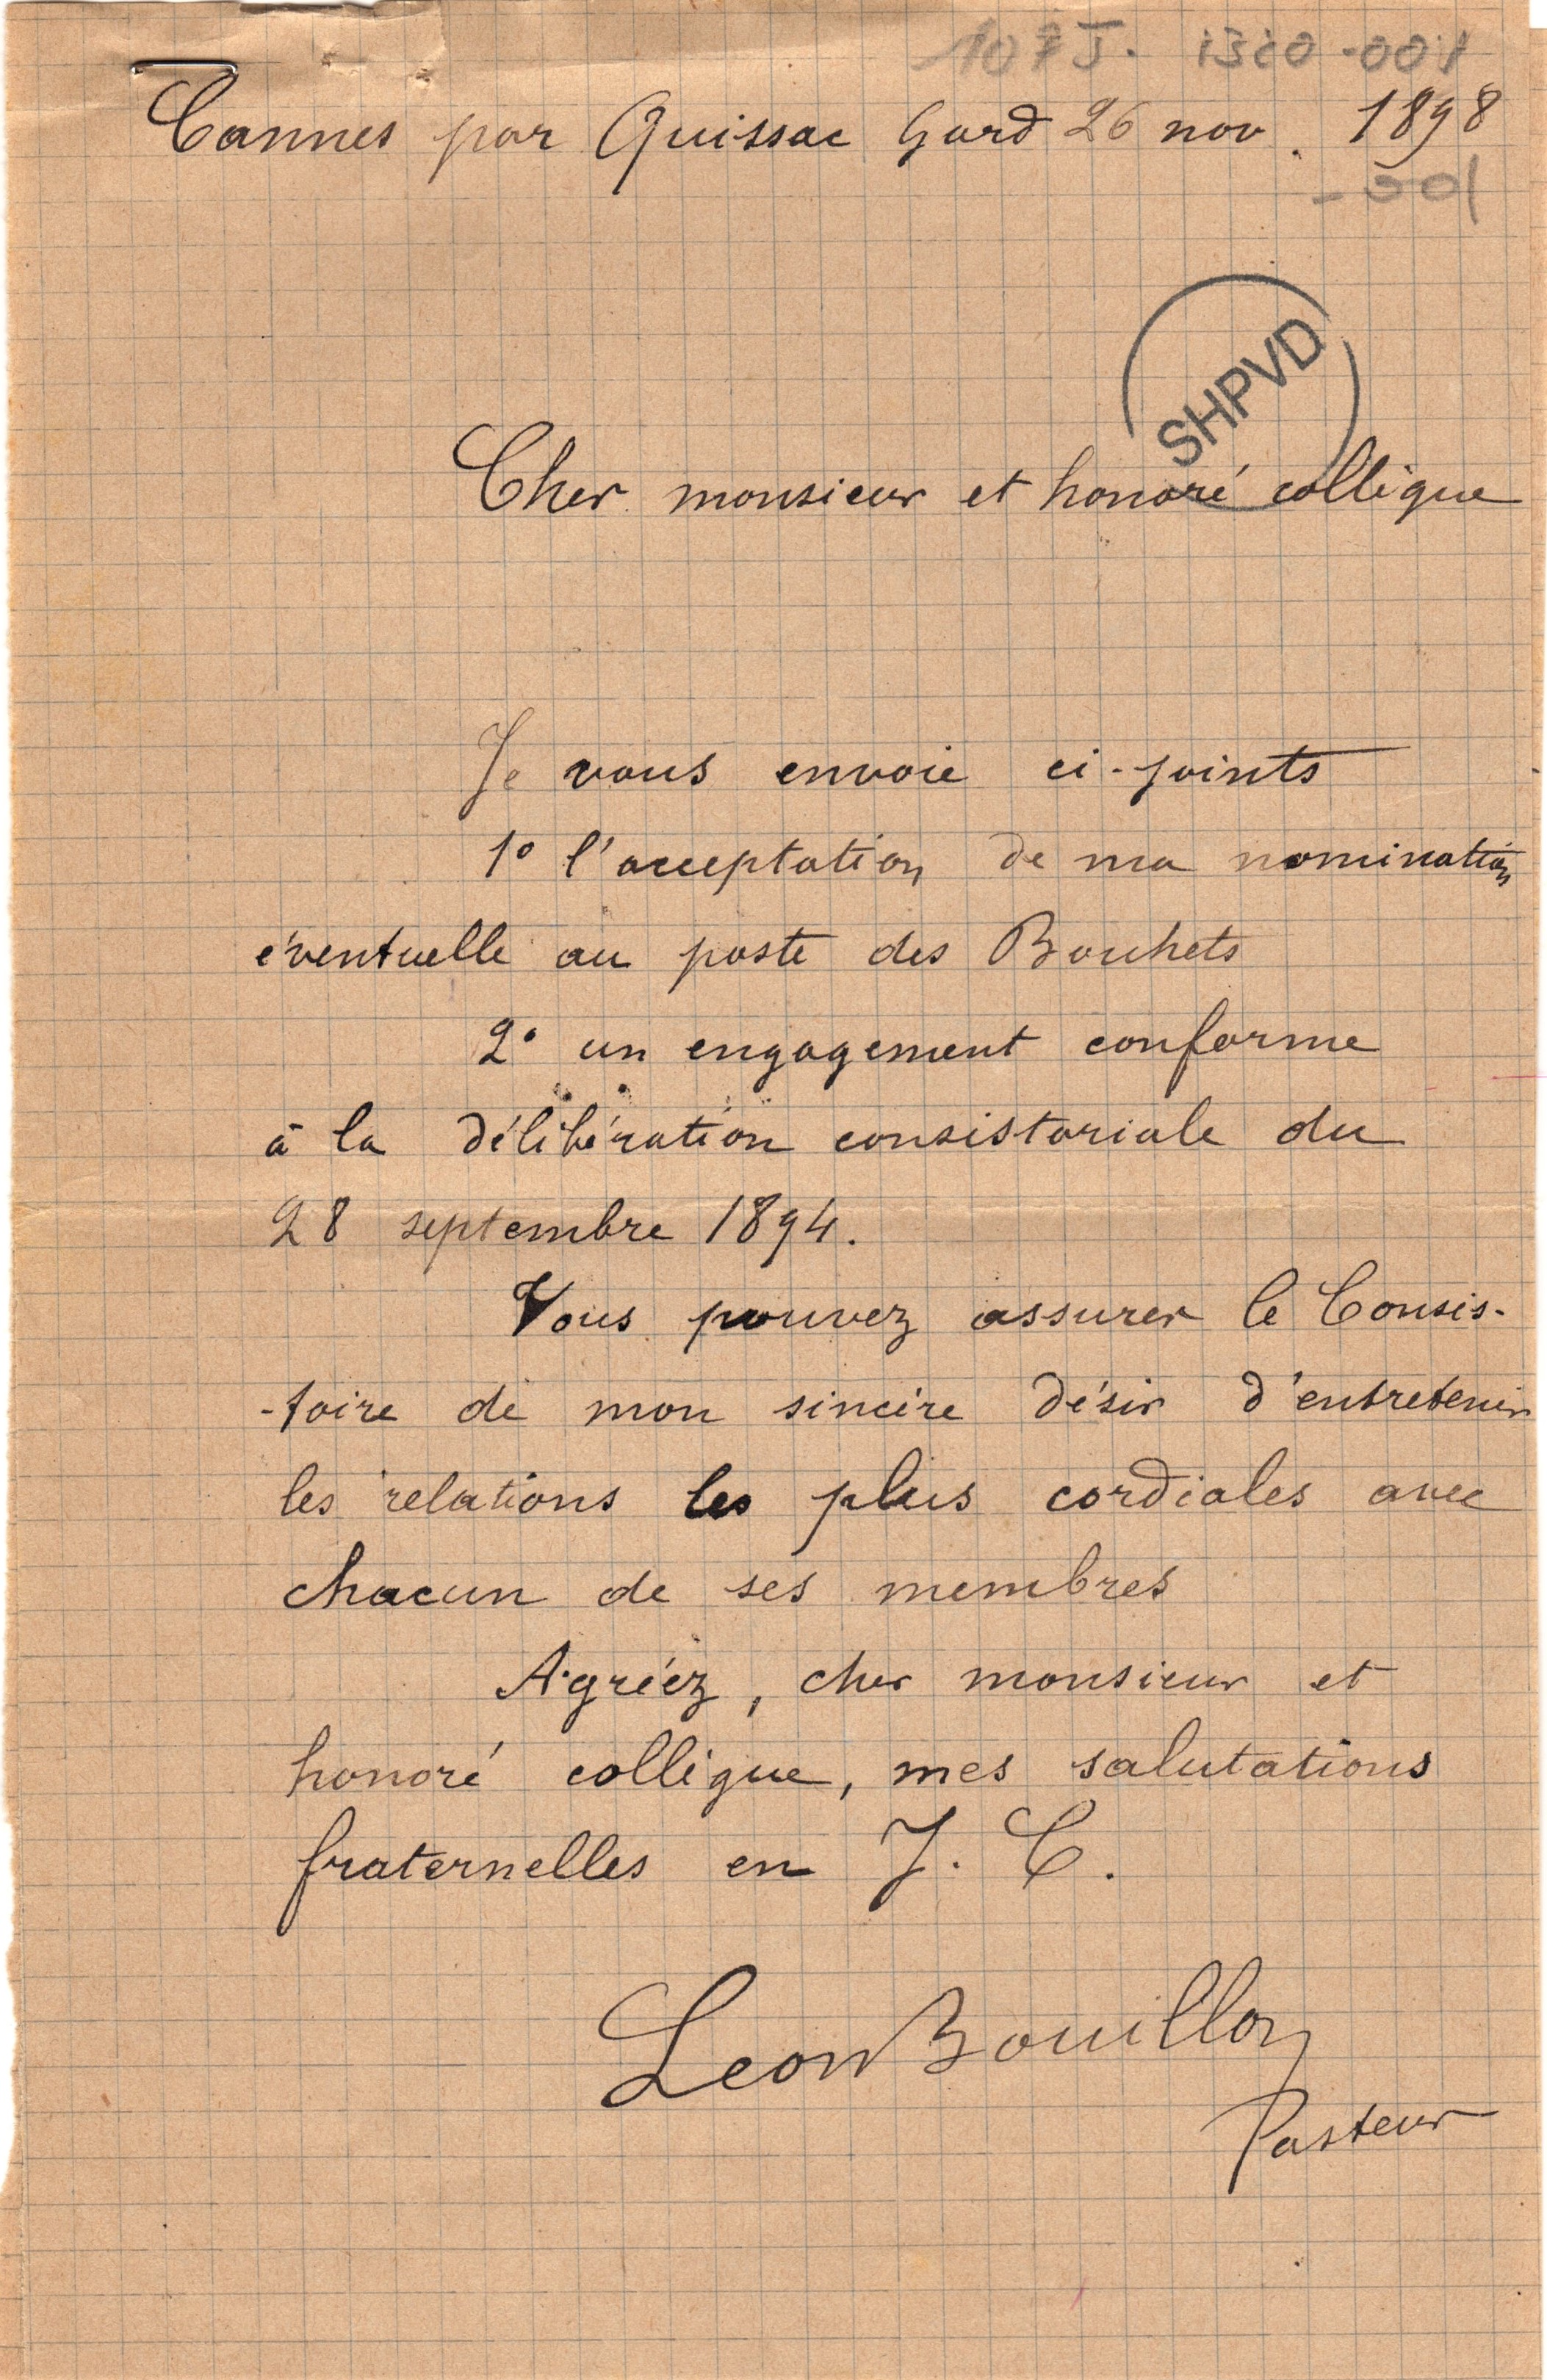 107 J. 1320-001
Cannes par Quissac Gard 26 nov. 1898
-001
SHPVD
Cher monsieur et honoré collègue
Je vous envoie ci-joints
1° l'acceptation de ma nomination
éventuelle au poste des Bouchets
2° un engagement conforme
à la délibération consistoriale du
28 septembre 1894.
Vous pouvez assurer le Consis-
-toire de mon sincère désir d'entretenir
les relations les plus cordiales avec
chacun de ses membres
Agréez, cher monsieur et
honoré collègue, mes salutations
fraternelles en J. C.
Leon Bouillon
Pasteur